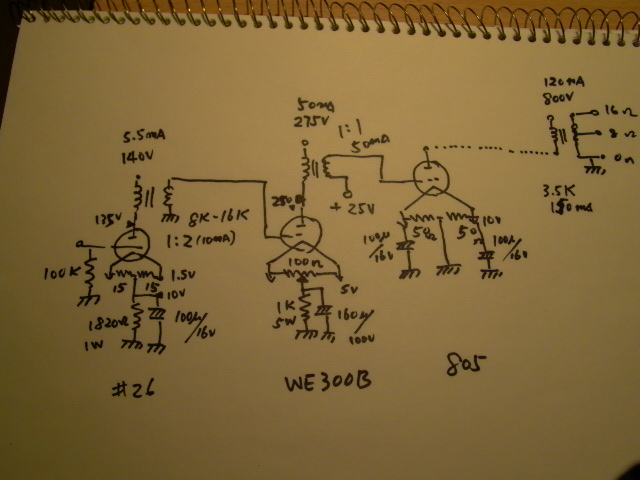 120mA
800V
16Ω
8Ω
0Ω
3.5K
150mA
50mA
275V
1:1
50mA
+25V
5.5mA
140V
135V
8K-16K
1:2 (10mA)
250V
100K
15 15
1.5V
10V
1820Ω
1W
100μ/16V
100Ω
5V
1K
5W
160μ/100V
100μ/16V
5Ω
5Ω
10V
100μ/16V
#26
WE300B
805